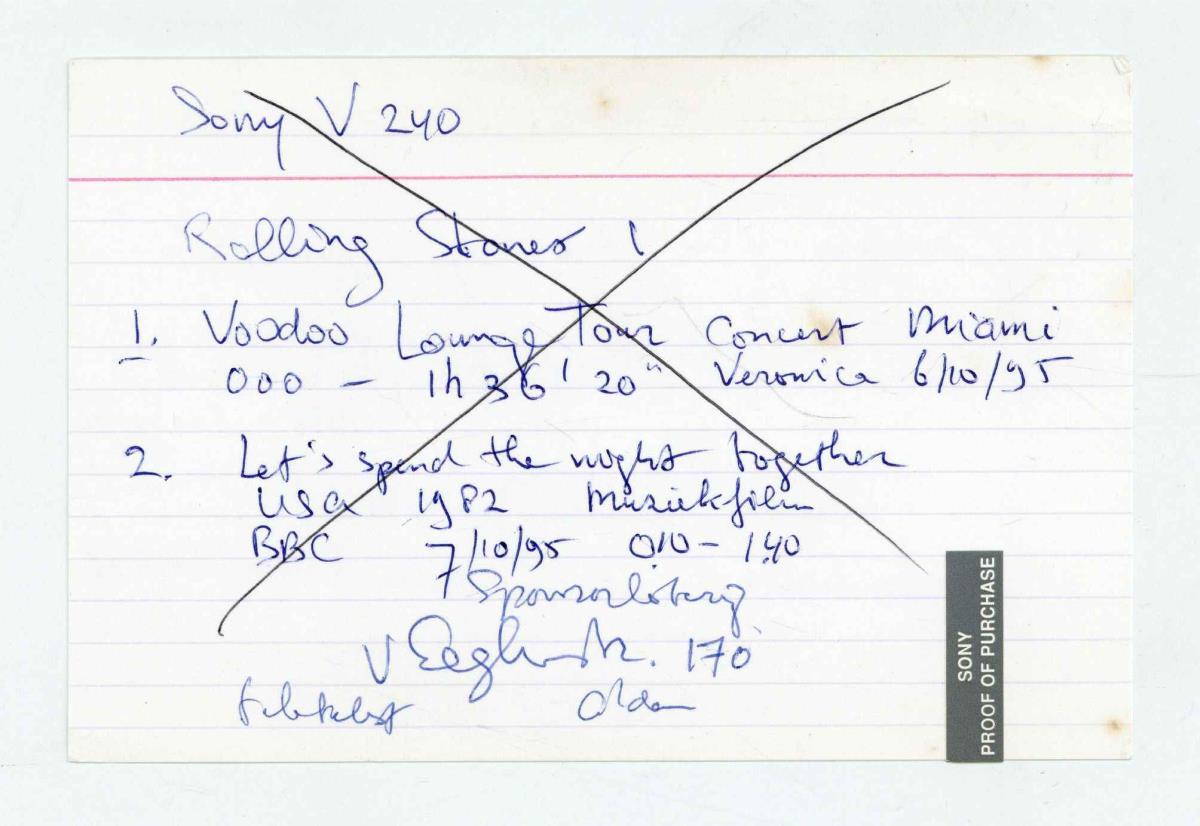 Sony V 240
Rolling Stones 1
1. Voodoo Lounge Tour Concert Miami
000 - 1h 36' 20" Veronica 6/10/95
2. Let's spend the night together
USA 1982 Muziekfilm
BBC 7/10/95 010 - 140
V 170
SONY
PROOF OF PURCHASE